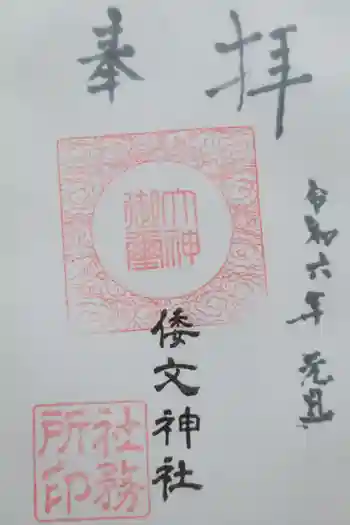 奉拝
令和六年 元旦
大神
御璽
倭文神社
社務
所印